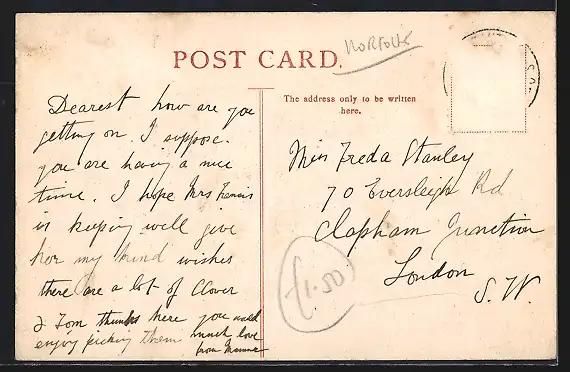 POST CARD.
NORFOLK
The address only to be written
here.
Dearest how are you
getting on. I suppose.
you are having a nice
time. I hope Mrs Francis
is keeping well give
her my kind wishes
there are a lot of Clover
& Tom thumbs here you would
enjoy picking them much love
from Mamma
Miss Freda Stanley
70 Eversleigh Rd
Clapham Junction
London
S.W.
£1.50